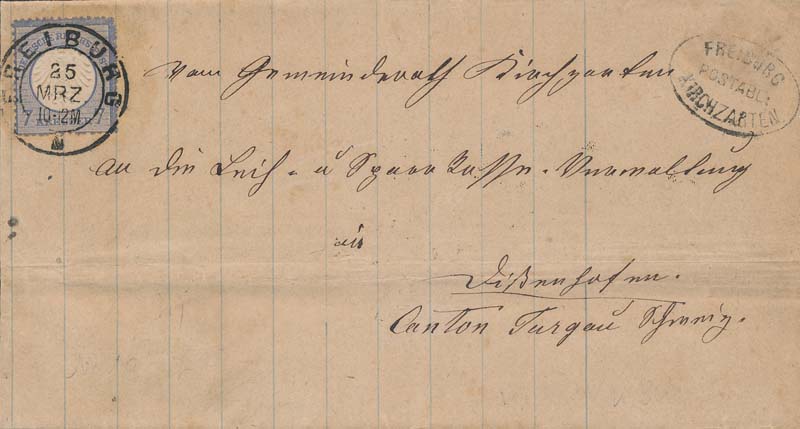 FREIBURG
25
MRZ
10-12M
7 7
FREIBURG
POSTABL:
KIRCHZARTEN
Vom Gemeinderath Kirchzarten
an die Leih- u Sparr Kasse-Verwaltung
in
Dißenhofen.
Canton Turgau Schweiz.